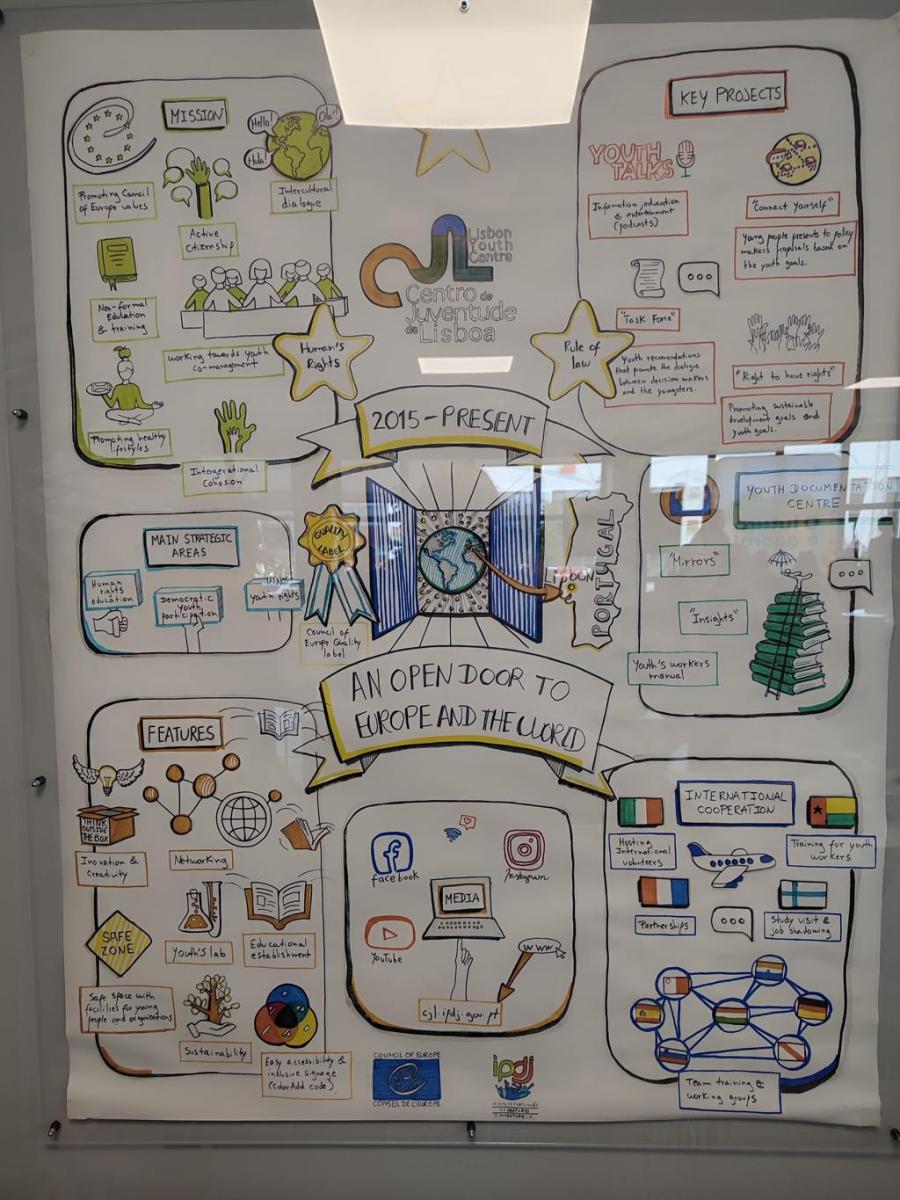 MISSION
Hello!
Ola!
Hola!
Promoting Council
of Europe values
Active
Citizenship
Intercultural
dialogue
Non-formal
Education
& training
working towards youth
co-management
Promoting healthy
lifestyles
Intergerational
Cohesion
Human's
Rights
Lisbon
Youth
Centre
Centro de
Juventude
de Lisboa
Rule of
law
KEY PROJECTS
YOUTH
TALKS
Infomation, education
& entertainment
(podcasts)
"Connect Yourself"
Young people presents to policy
makers proposals based on
the youth goals.
"Task Force"
Youth recomendations
that promote the dialogue
between decision makers
and the youngsters.
"Right to have rights"
Promoting sustainable
development goals and
youth goals.
2015-PRESENT
MAIN STRATEGIC
AREAS
Human
rights
education
Democratic
Youth
participation
Youth rights
QUALITY
LABEL
Council of
Europe Quality
label
PORTUGAL
YOUTH DOCUMENTATION
CENTRE
"Mirrors"
"Insights"
Youth's workers
manual
AN OPEN DOOR TO
EUROPE AND THE WORLD
FEATURES
THINK
OUTSIDE
THE BOX
Inovation &
Creativity
Networking
SAFE
ZONE
Youth's lab
Educational
establishment
Safe space with
facilities for young
people and organizations
Sustainability
Easy accessibility &
inclusive signage
(ColorAdd code)
facebook
Instagram
MEDIA
YouTube
www
cjl.ipdj.gov.pt
INTERNATIONAL
COOPERATION
Hosting
International
volunteers
Training for youth
workers
Partnerships
Study visit &
job shadowing
Team training &
working groups
COUNCIL OF EUROPE
CONSEIL DE L'EUROPE
ipdj